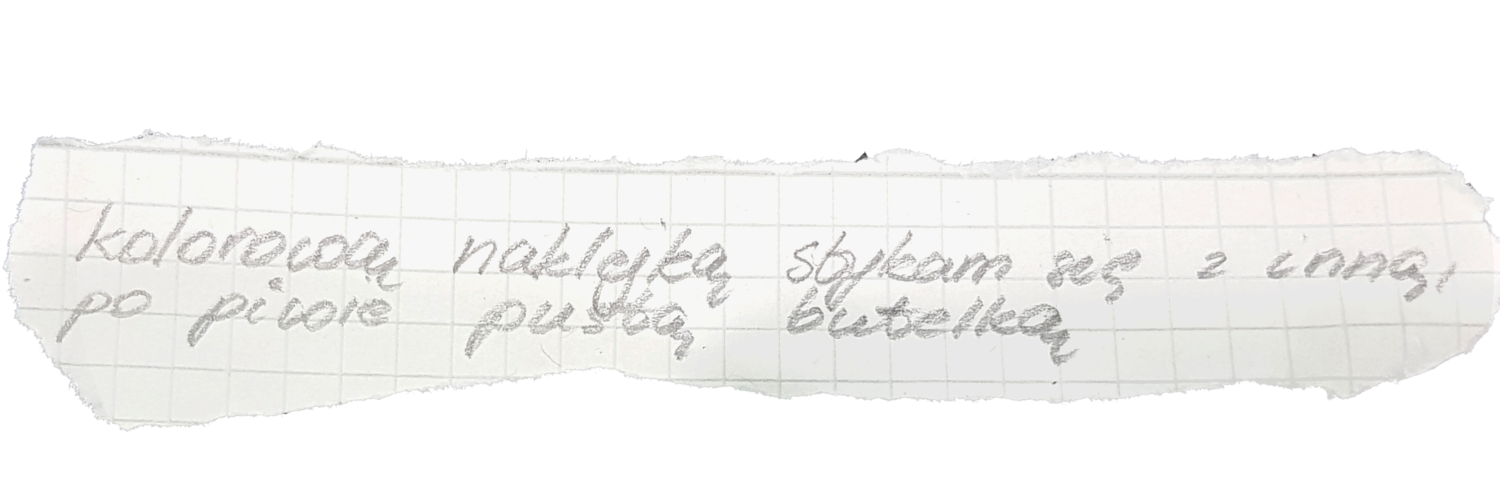 kolorową naklejką stykam się z inną,
po piwie pustą butelką